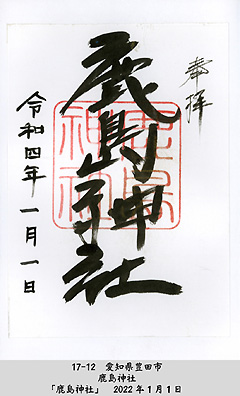 奉拝
鹿島神社
鹿島神社
令和四年 一月一日
17-12 愛知県豊田市
鹿島神社
「鹿島神社」 2022年1月1日